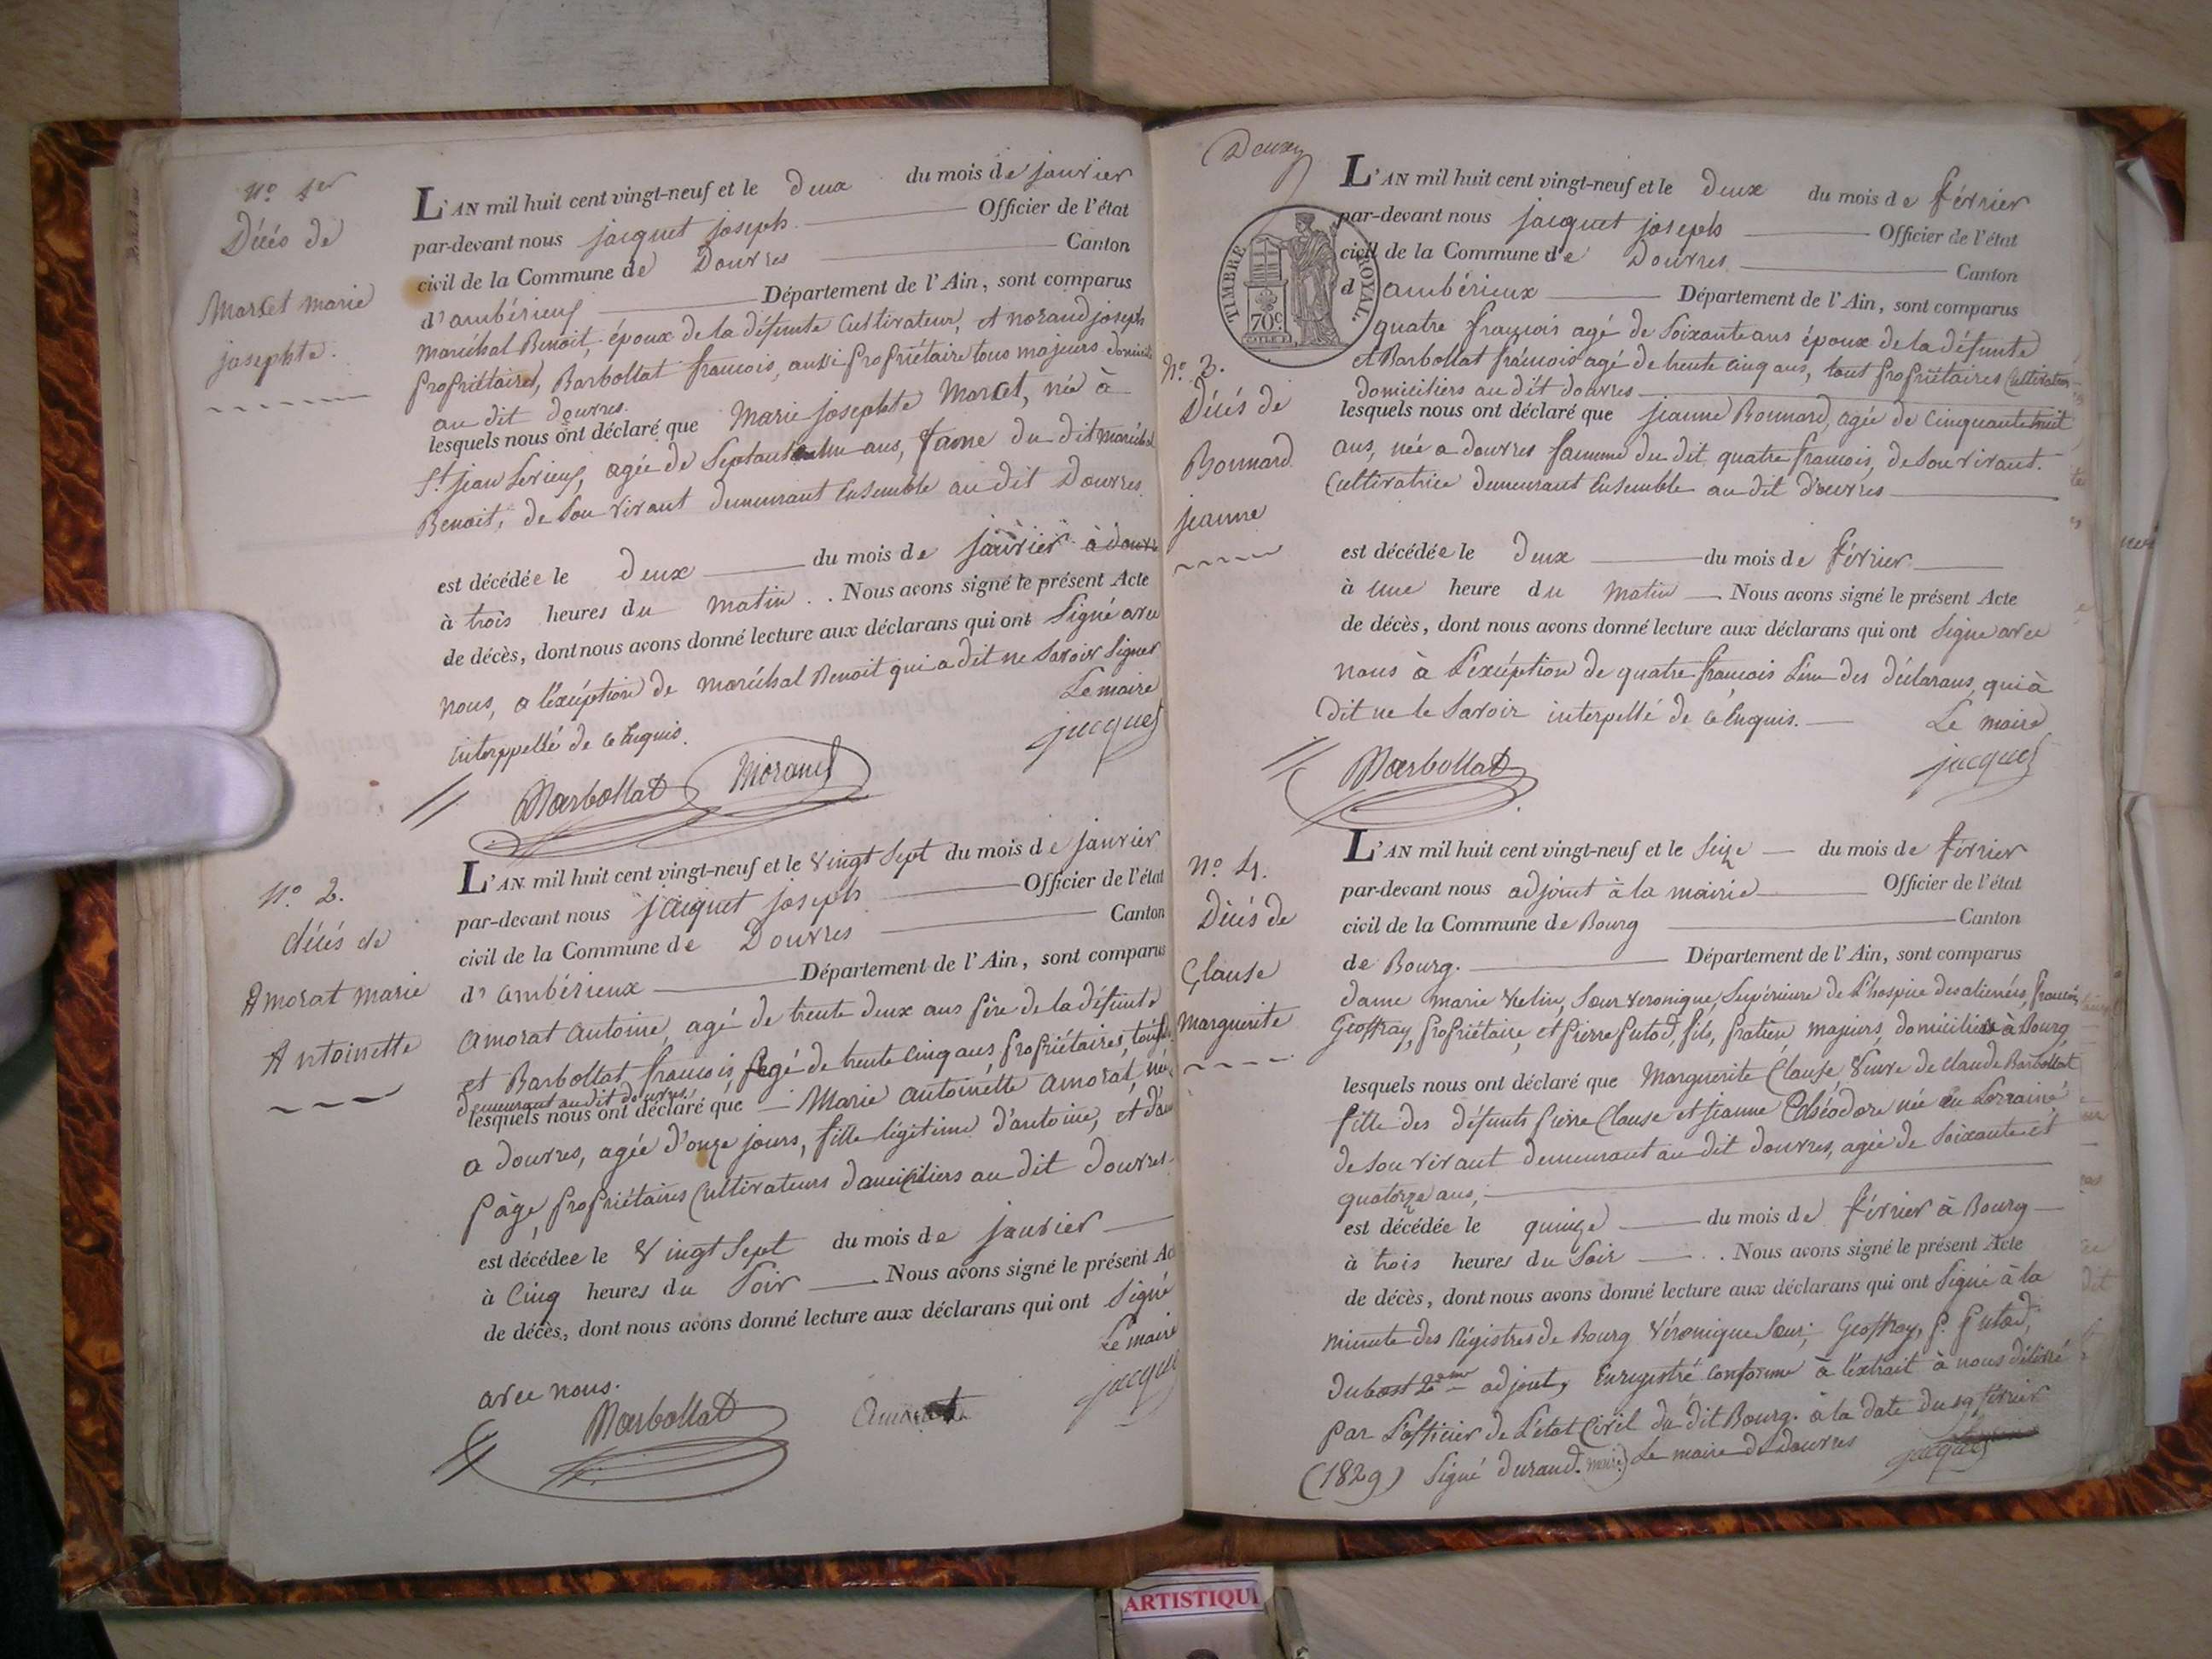 N.º 1er
Décés de
Marcet marie
josephte.
L'AN mil huit cent vingt-neuf et le deux du mois de janvier
par-devant nous jacquet joseph Officier de l'état
civil de la Commune de Douvres Canton
d'ambérieux Département de l'Ain, sont comparus
maréchal Benoit, époux de la défunte Cultivateur, et morand joseph
propriétaires, Barbollat francois, aussi propriétaire tous majeurs
au dit douvres.
lesquels nous ont déclaré que Marie josephte Marcet, née à
St jean ans, du dit maréchal
Benoit, de son vivant demeurant Ensemble au dit Douvres.
est décédée le deux du mois de janvier
à trois heures du matin. Nous avons signé le présent Acte
de décès, dont nous avons donné lecture aux déclarans qui ont Signé avec
nous, a l'exéption de maréchal Benoit qui a dit ne Savoir Signer
interppellé de ce Enquis. Le maire
Barbollat Morand jacquet
N.º 2.
décés de
Amorat marie
Antoinette
L'AN mil huit cent vingt-neuf et le vingt Sept du mois de janvier
par-devant nous jacquet joseph Officier de l'état
civil de la Commune de Douvres Canton
d'ambérieux Département de l'Ain, sont comparus
amorat antoine, agé de trente deux ans père de la défunte
et Barbollat francois agé de trente cinq ans, propriétaires, tous
demeurant au dit douvres.
lesquels nous ont déclaré que Marie antoinette amorat, née
a douvres, agée d'onze jours, fille légitime d'antoine, et
page, propriétaires Cultivateurs domiciliers au dit douvres.
est décédée le vingt Sept du mois de janvier
à Cinq heures du Soir Nous avons signé le présent
de décès, dont nous avons donné lecture aux déclarans qui ont Signé
avec nous. Le maire
Barbollat jacquet
Deux
TIMBRE ROYAL.
70c
N.º 3.
Décés de
Bonnard
jeanne
L'AN mil huit cent vingt-neuf et le deux du mois de février
par-devant nous jacquet joseph Officier de l'état
civil de la Commune de Douvres Canton
d'ambérieux Département de l'Ain, sont comparus
quatre françois agé de Soixante ans époux de la défunte
et Barbollat francois agé de trente cinq ans, tous propriétaires Cultivateurs
domiciliers au dit douvres
lesquels nous ont déclaré que jeanne Bonnard, agée de cinquante huit
ans, née a douvres famme du dit quatre francois, de son vivant.
Cultivatrice demeurant Ensemble au dit douvres
est décédée le deux du mois de février
à une heure du matin Nous avons signé le présent Acte
de décès, dont nous avons donné lecture aux déclarans qui ont Signé avec
nous à l'exéption de quatre francois l'un des déclarans, qui à
dit ne le Savoir interpellé de ce Enquis. Le maire
Barbollat jacquet
N.º 4.
Décés de
Clause
Marguerite
L'AN mil huit cent vingt-neuf et le Seize du mois de février
par-devant nous adjoint à la mairie Officier de l'état
civil de la Commune de Bourg Canton
de Bourg. Département de l'Ain, sont comparus
dame marie Sœur Veronique, Supérieure de l'hospice des aliénées, francois
Geoffray, propriétaire, et pierre putod, fils, majeurs, domiciliés à Bourg,
lesquels nous ont déclaré que Marguerite Clause, Veuve de claude Barbollat
fille des défunts pierre Clause et jeanne née en Lorraine
de son vivant demeurant au dit douvres, agée de Soixante et
quatorze ans,
est décédée le quinze du mois de février à Bourg
à trois heures du Soir Nous avons signé le présent Acte
de décès, dont nous avons donné lecture aux déclarans qui ont Signé à la
minute des Régistres de Bourg Véronique Sœur, Geoffray, P. Putod,
Dubost 2eme adjoint, Enregistré Conforme à l'extrait à nous délivré
par l'officier de l'état Civil du dit Bourg. à la date du 19 février
(1829) Signé durand. (maire) Le maire de Douvres jacquet
ARTISTIQU